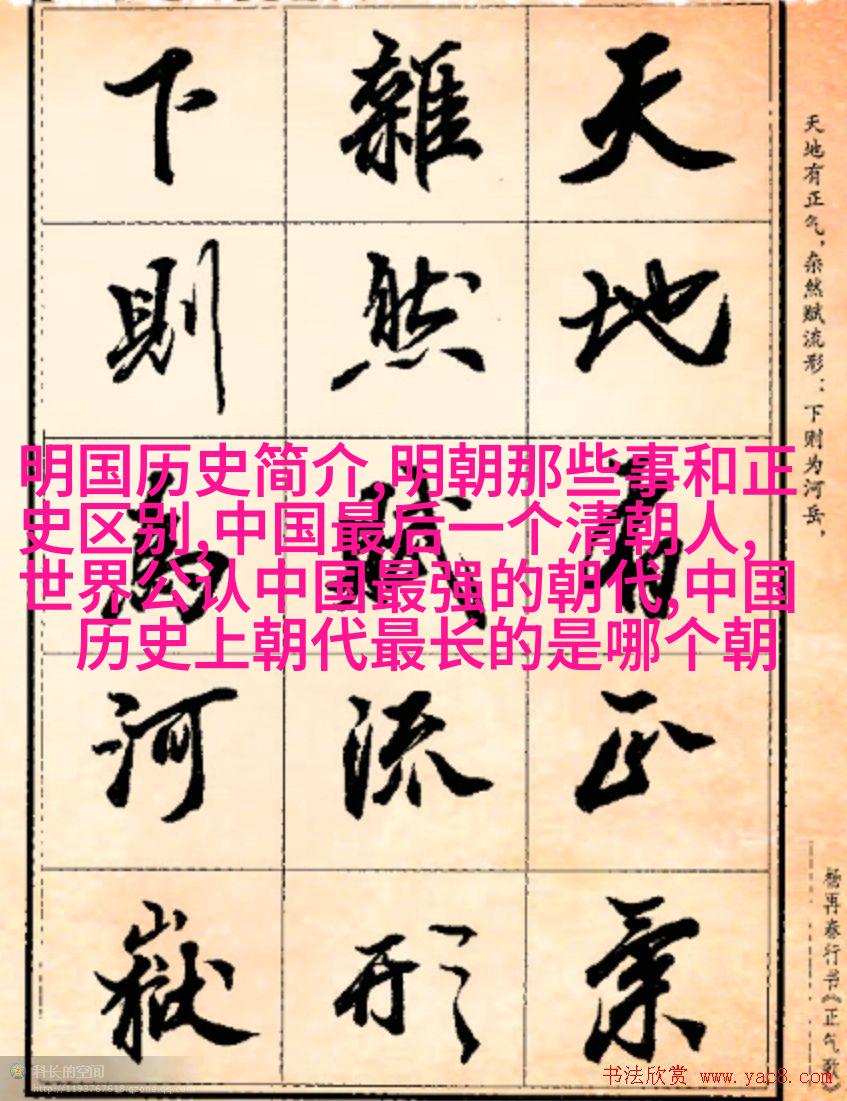 天地有正氣
雜然賦流形
下則為河嶽
天地有正气，杂然赋流形：下则为河岳，
杨再春行书《正气歌》
明国历史简介,明朝那些事和正
史区别,中国最后一个清朝人,
世界公认中国最强的朝代,中国
历史上朝代最长的是哪个朝
科长的空间
http://1193767618.qzone.qq.com
书法欣赏 www.yac8.com